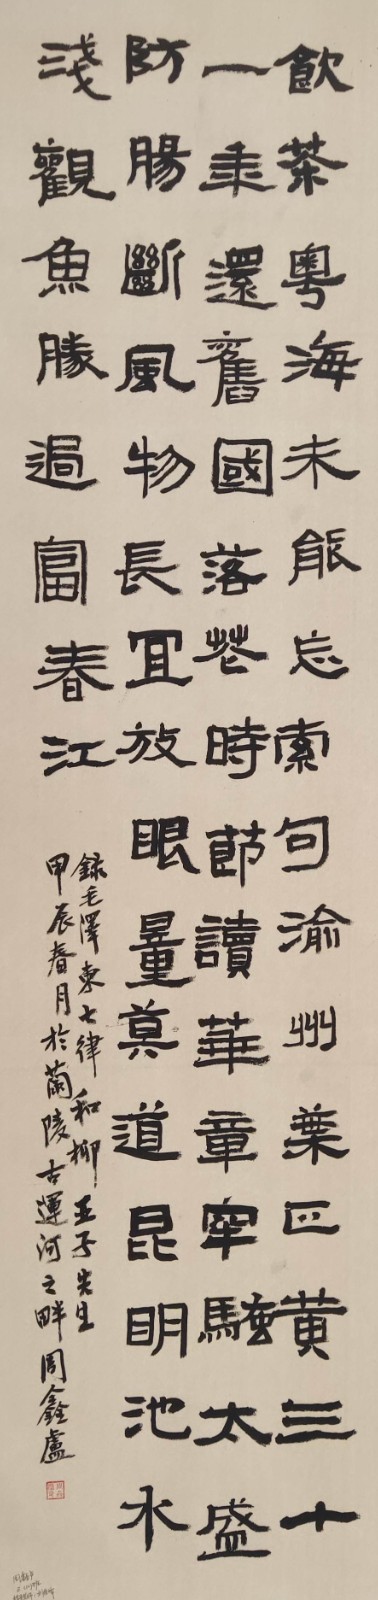 飲茶粵海未能忘索句渝州葉正黃三十
一年還舊國落花時節讀華章牢騷太盛
防腸斷風物長宜放眼量莫道昆明池水
淺觀魚勝過富春江
錄毛澤東七律和柳亞子先生
甲辰春月於蘭陵古運河之畔周鑫盧